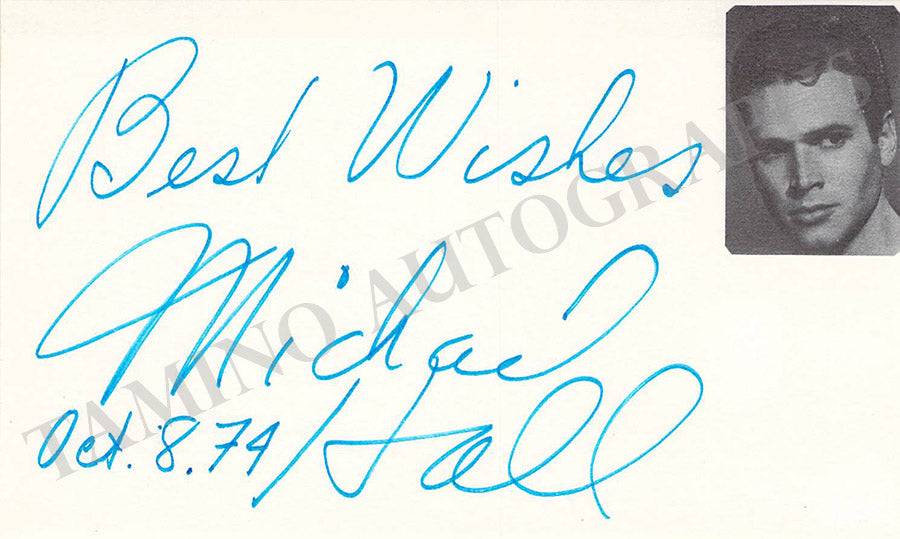 Best Wishes
Michael
Oct. 8. 74 Hall
TAMINO AUTOGRAPHS